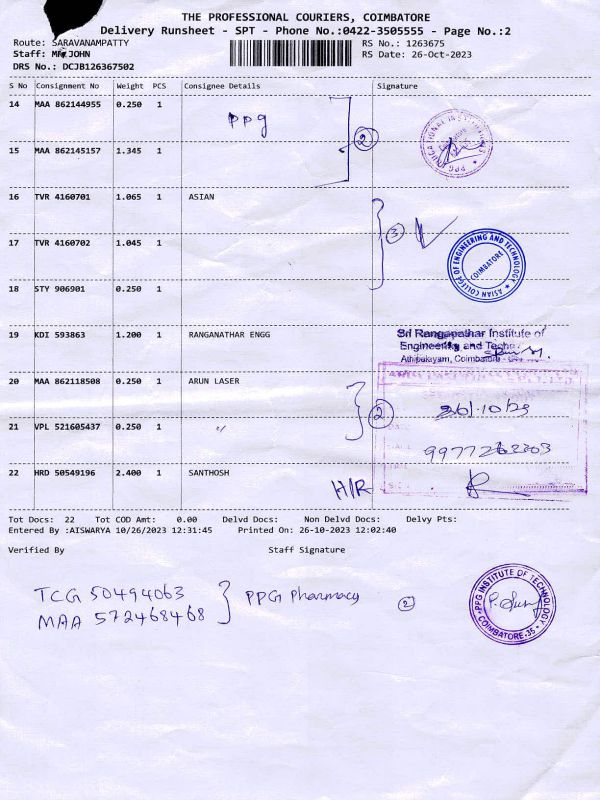 THE PROFESSIONAL COURIERS, COIMBATORE
Delivery Runsheet - SPT - Phone No.:0422-3505555 - Page No.:2
Route: SARAVANAMPATTY RS No.: 1263675
Staff: MR.JOHN RS Date: 26-Oct-2023
DRS No.: DCJB126367502
S No Consignment No Weight PCS Consignee Details Signature
14 MAA 862144955 0.250 1 ppg 2
15 MAA 862145157 1.345 1
PPG EDUCATIONAL INSTITUTIONS
16 TVR 4160701 1.065 1 ASIAN
17 TVR 4160702 1.045 1 3
ASIAN COLLEGE OF ENGINEERING AND TECHNOLOGY
COIMBATORE
18 STY 906901 0.250 1
19 KDI 593863 1.200 1 RANGANATHAR ENGG Sri Ranganathar Institute of
Engineering and
Athipalayam, Coimbatore
20 MAA 862118508 0.250 1 ARUN LASER 2 26/10/23
21 VPL 521605437 0.250 1 〃 9977262203
22 HRD 50549196 2.400 1 SANTHOSH H/R
Tot Docs: 22 Tot COD Amt: 0.00 Delvd Docs: Non Delvd Docs: Delvy Pts:
Entered By :AISWARYA 10/26/2023 12:31:45 Printed On: 26-10-2023 12:02:40
Verified By Staff Signature
TCG 50494063 PPG Pharmacy 2
MAA 572468468
PPG INSTITUTE OF TECHNOLOGY
COIMBATORE-35